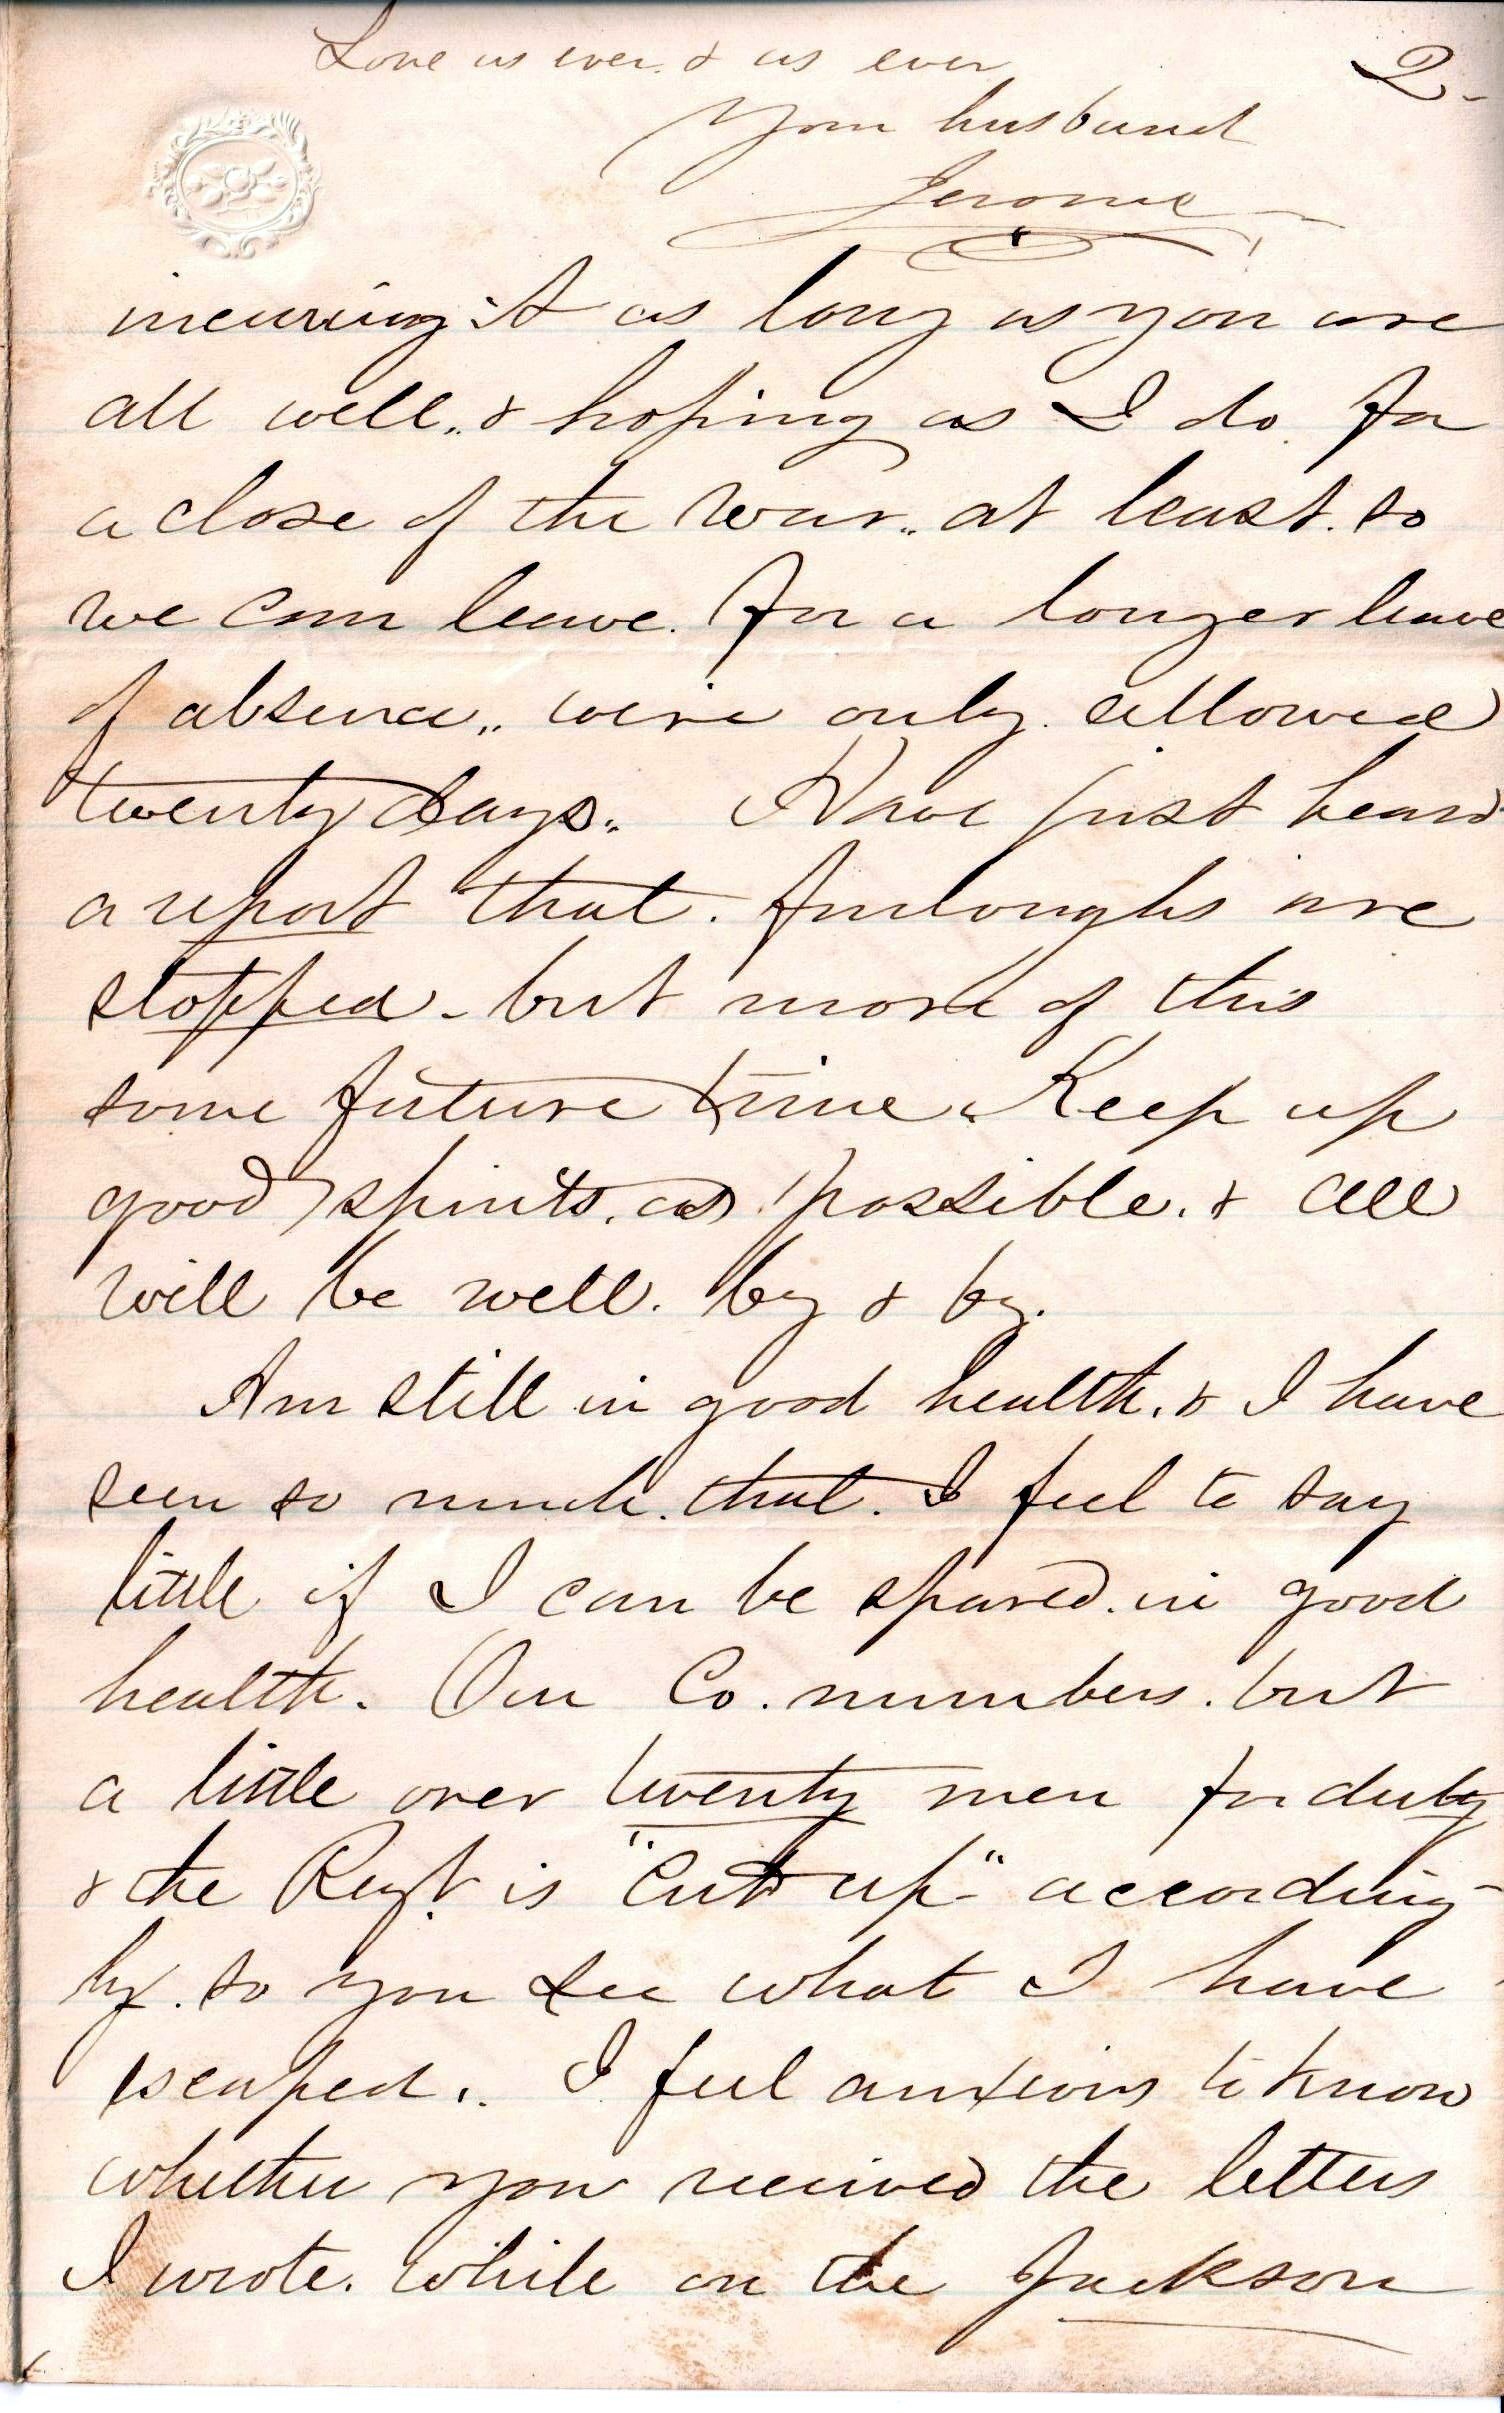 Love as ever. & as ever
2-
Your husband
Jerome
incuring it as long as you are
all well., & hoping as I do for
a close of the war., at least. so
we can leave. for a longer leave
of absence., were only. allowed
twenty days.. Have just heard
a report that. furloughs are
stopped - but more of this
some future time. Keep up
good spirits. as possible. & all
will be well. by & by.
Am still in good health. & I have
seen so much. that. I feel to say
little if I can be spared. in good
health. Our Co. numbers. but
a little over twenty men for duty
& the Regt. is "cut up" according-
ly. so you see what I have
escaped.. I feel anxious to know
whether you received the letters
I wrote. while on the Jackson